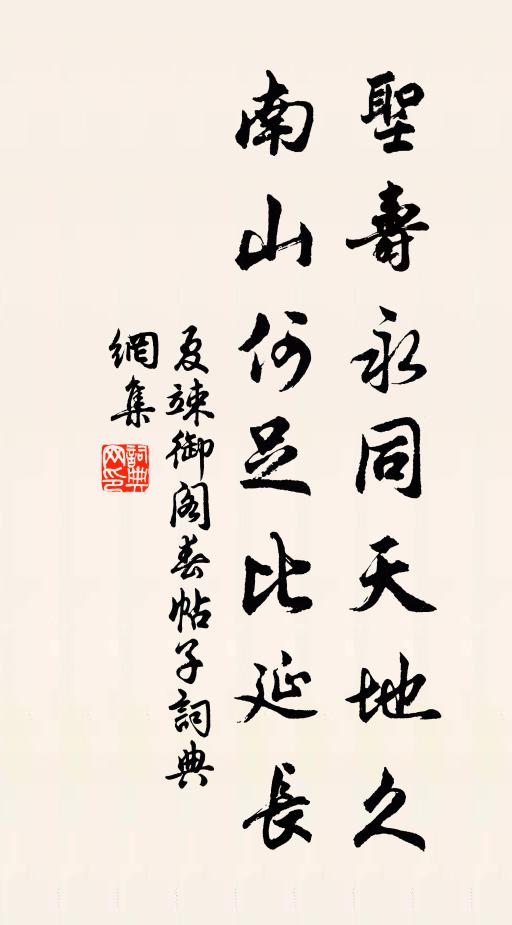 聖壽永同天地久
南山何足比延長
夏竦御閣春帖子詞典
網集
詞典網印